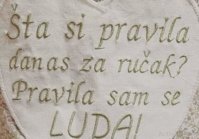 Šta si pravila
danas za ručak?
Pravila sam se
LUDA!